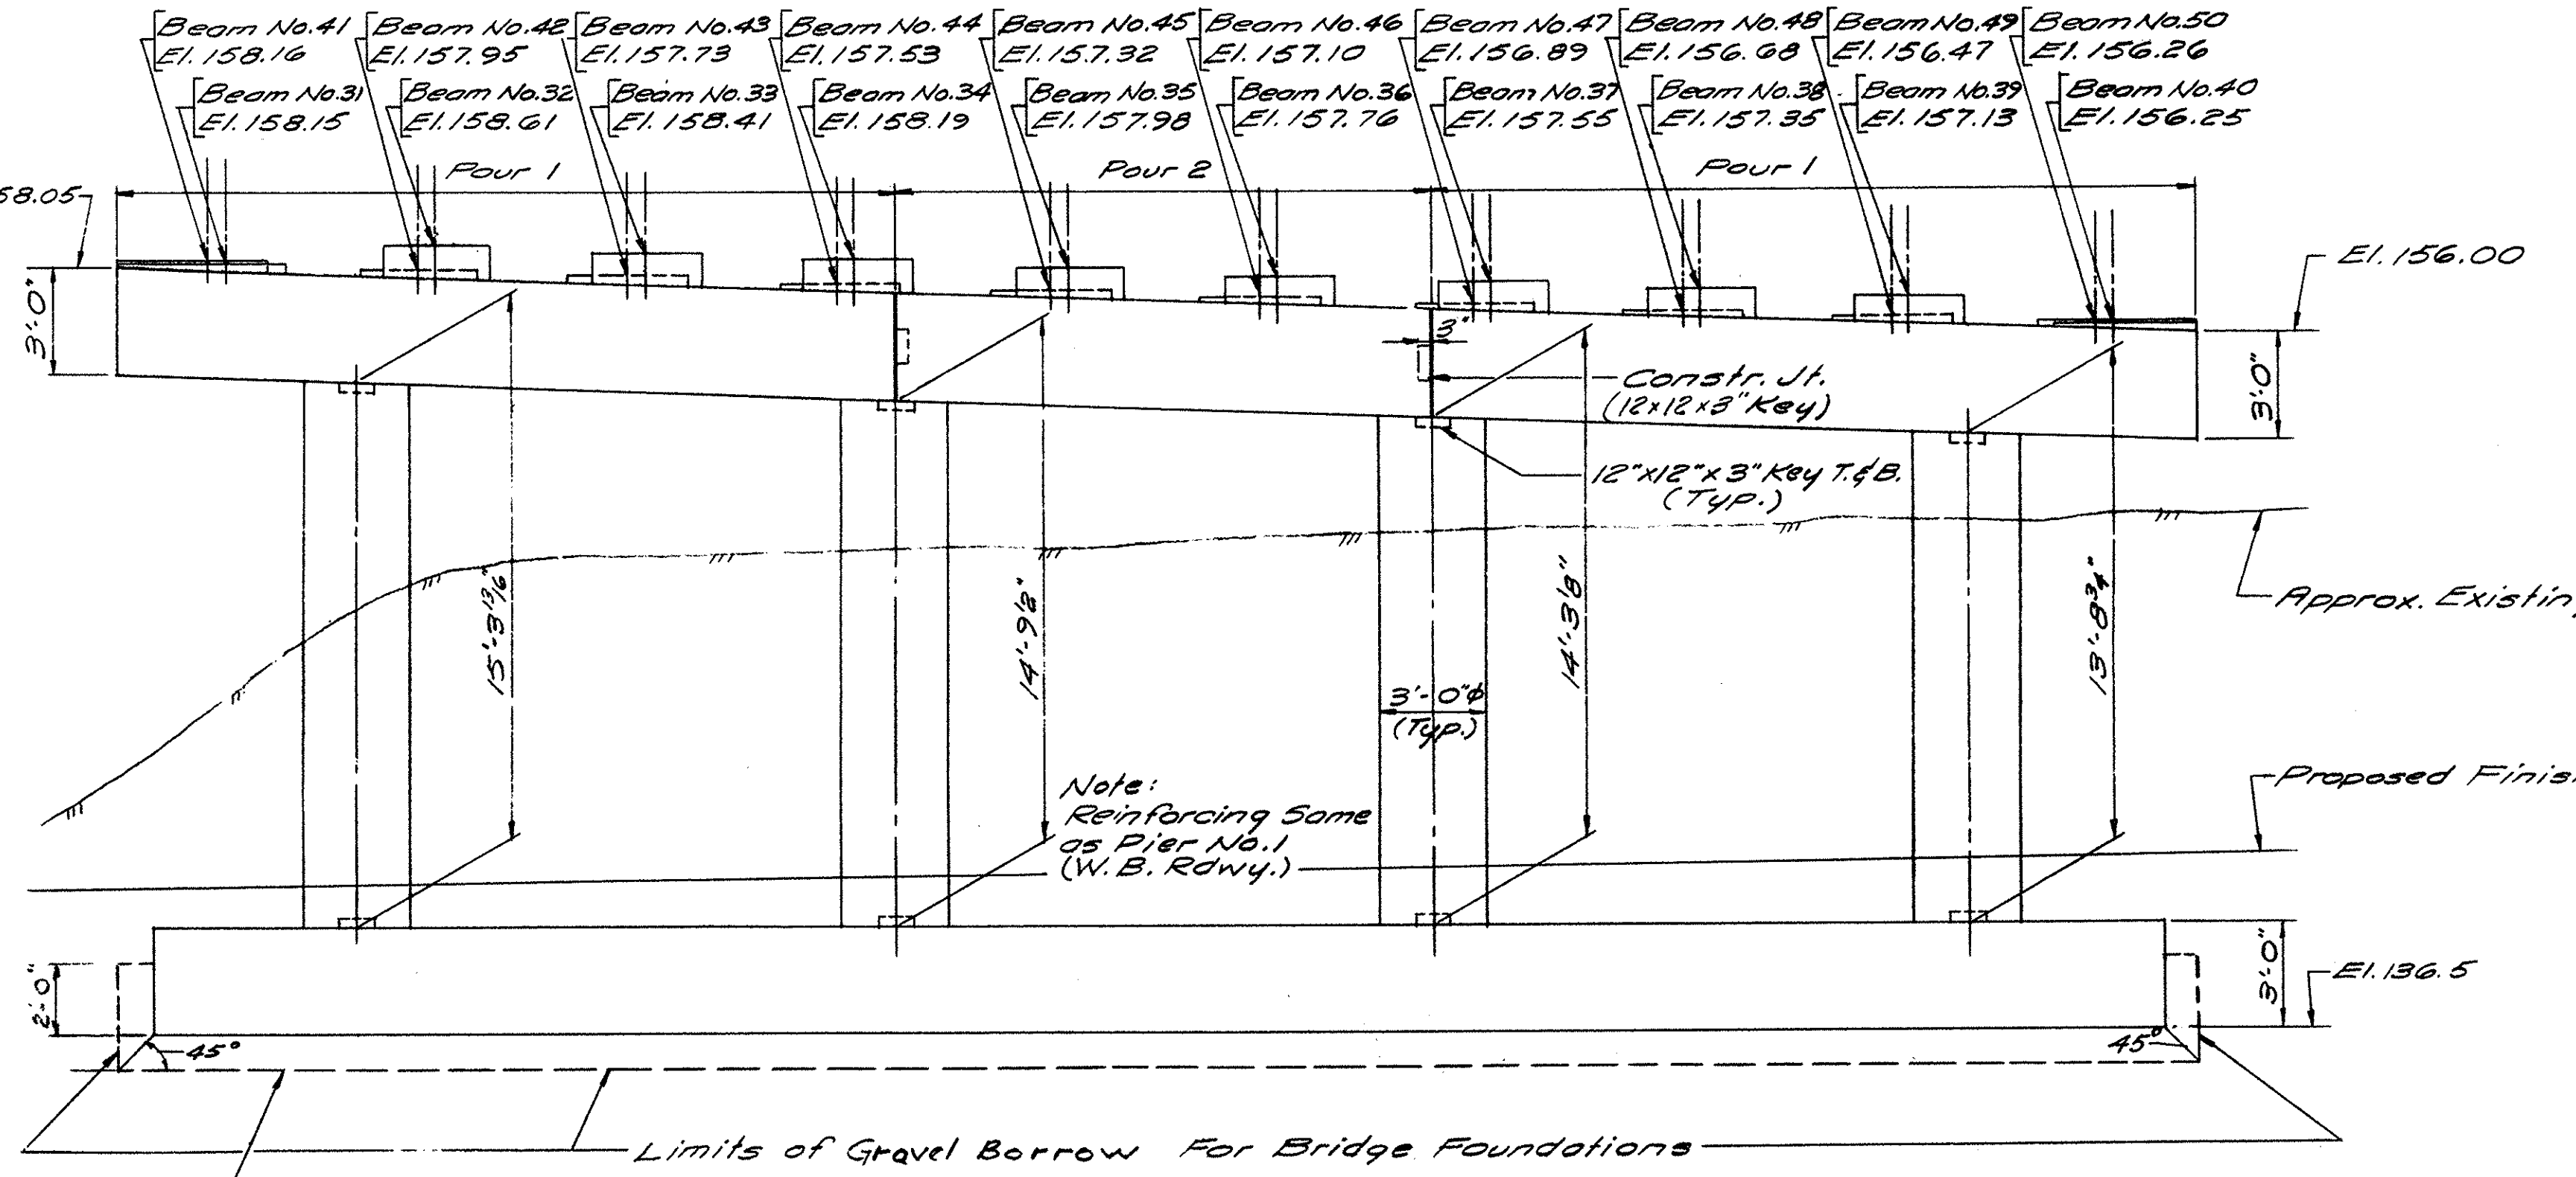 Beam No.41
El.158.16
Beam No.42
El.157.95
Beam No.43
El.157.73
Beam No.44
El.157.53
Beam No.45
El.157.32
Beam No.46
El.157.10
Beam No.47
El.156.89
Beam No.48
El.156.68
Beam No.49
El.156.47
Beam No.50
El.156.26
Beam No.31
El.158.15
Beam No.32
El.158.61
Beam No.33
El.158.41
Beam No.34
El.158.19
Beam No.35
El.157.98
Beam No.36
El.157.76
Beam No.37
El.157.55
Beam No.38
El.157.35
Beam No.39
El.157.13
Beam No.40
El.156.25
Pour 1
Pour 2
Pour 1
58.05
El.156.00
3'-0"
3"
Constr. Jt.
(12x12x3" Key)
3'-0"
12"x12"x3" Key T.&B.
(Typ.)
15'-3 13/16"
14'-9 1/2"
14'-3 1/8"
13'-8 3/4"
Approx. Existin
3'-0"ϕ
(Typ.)
Note:
Reinforcing Same
as Pier No.1
(W.B. Rdwy.)
Proposed Finis
2'-0"
3'-0"
El.136.5
45°
45°
Limits of Gravel Borrow For Bridge Foundations